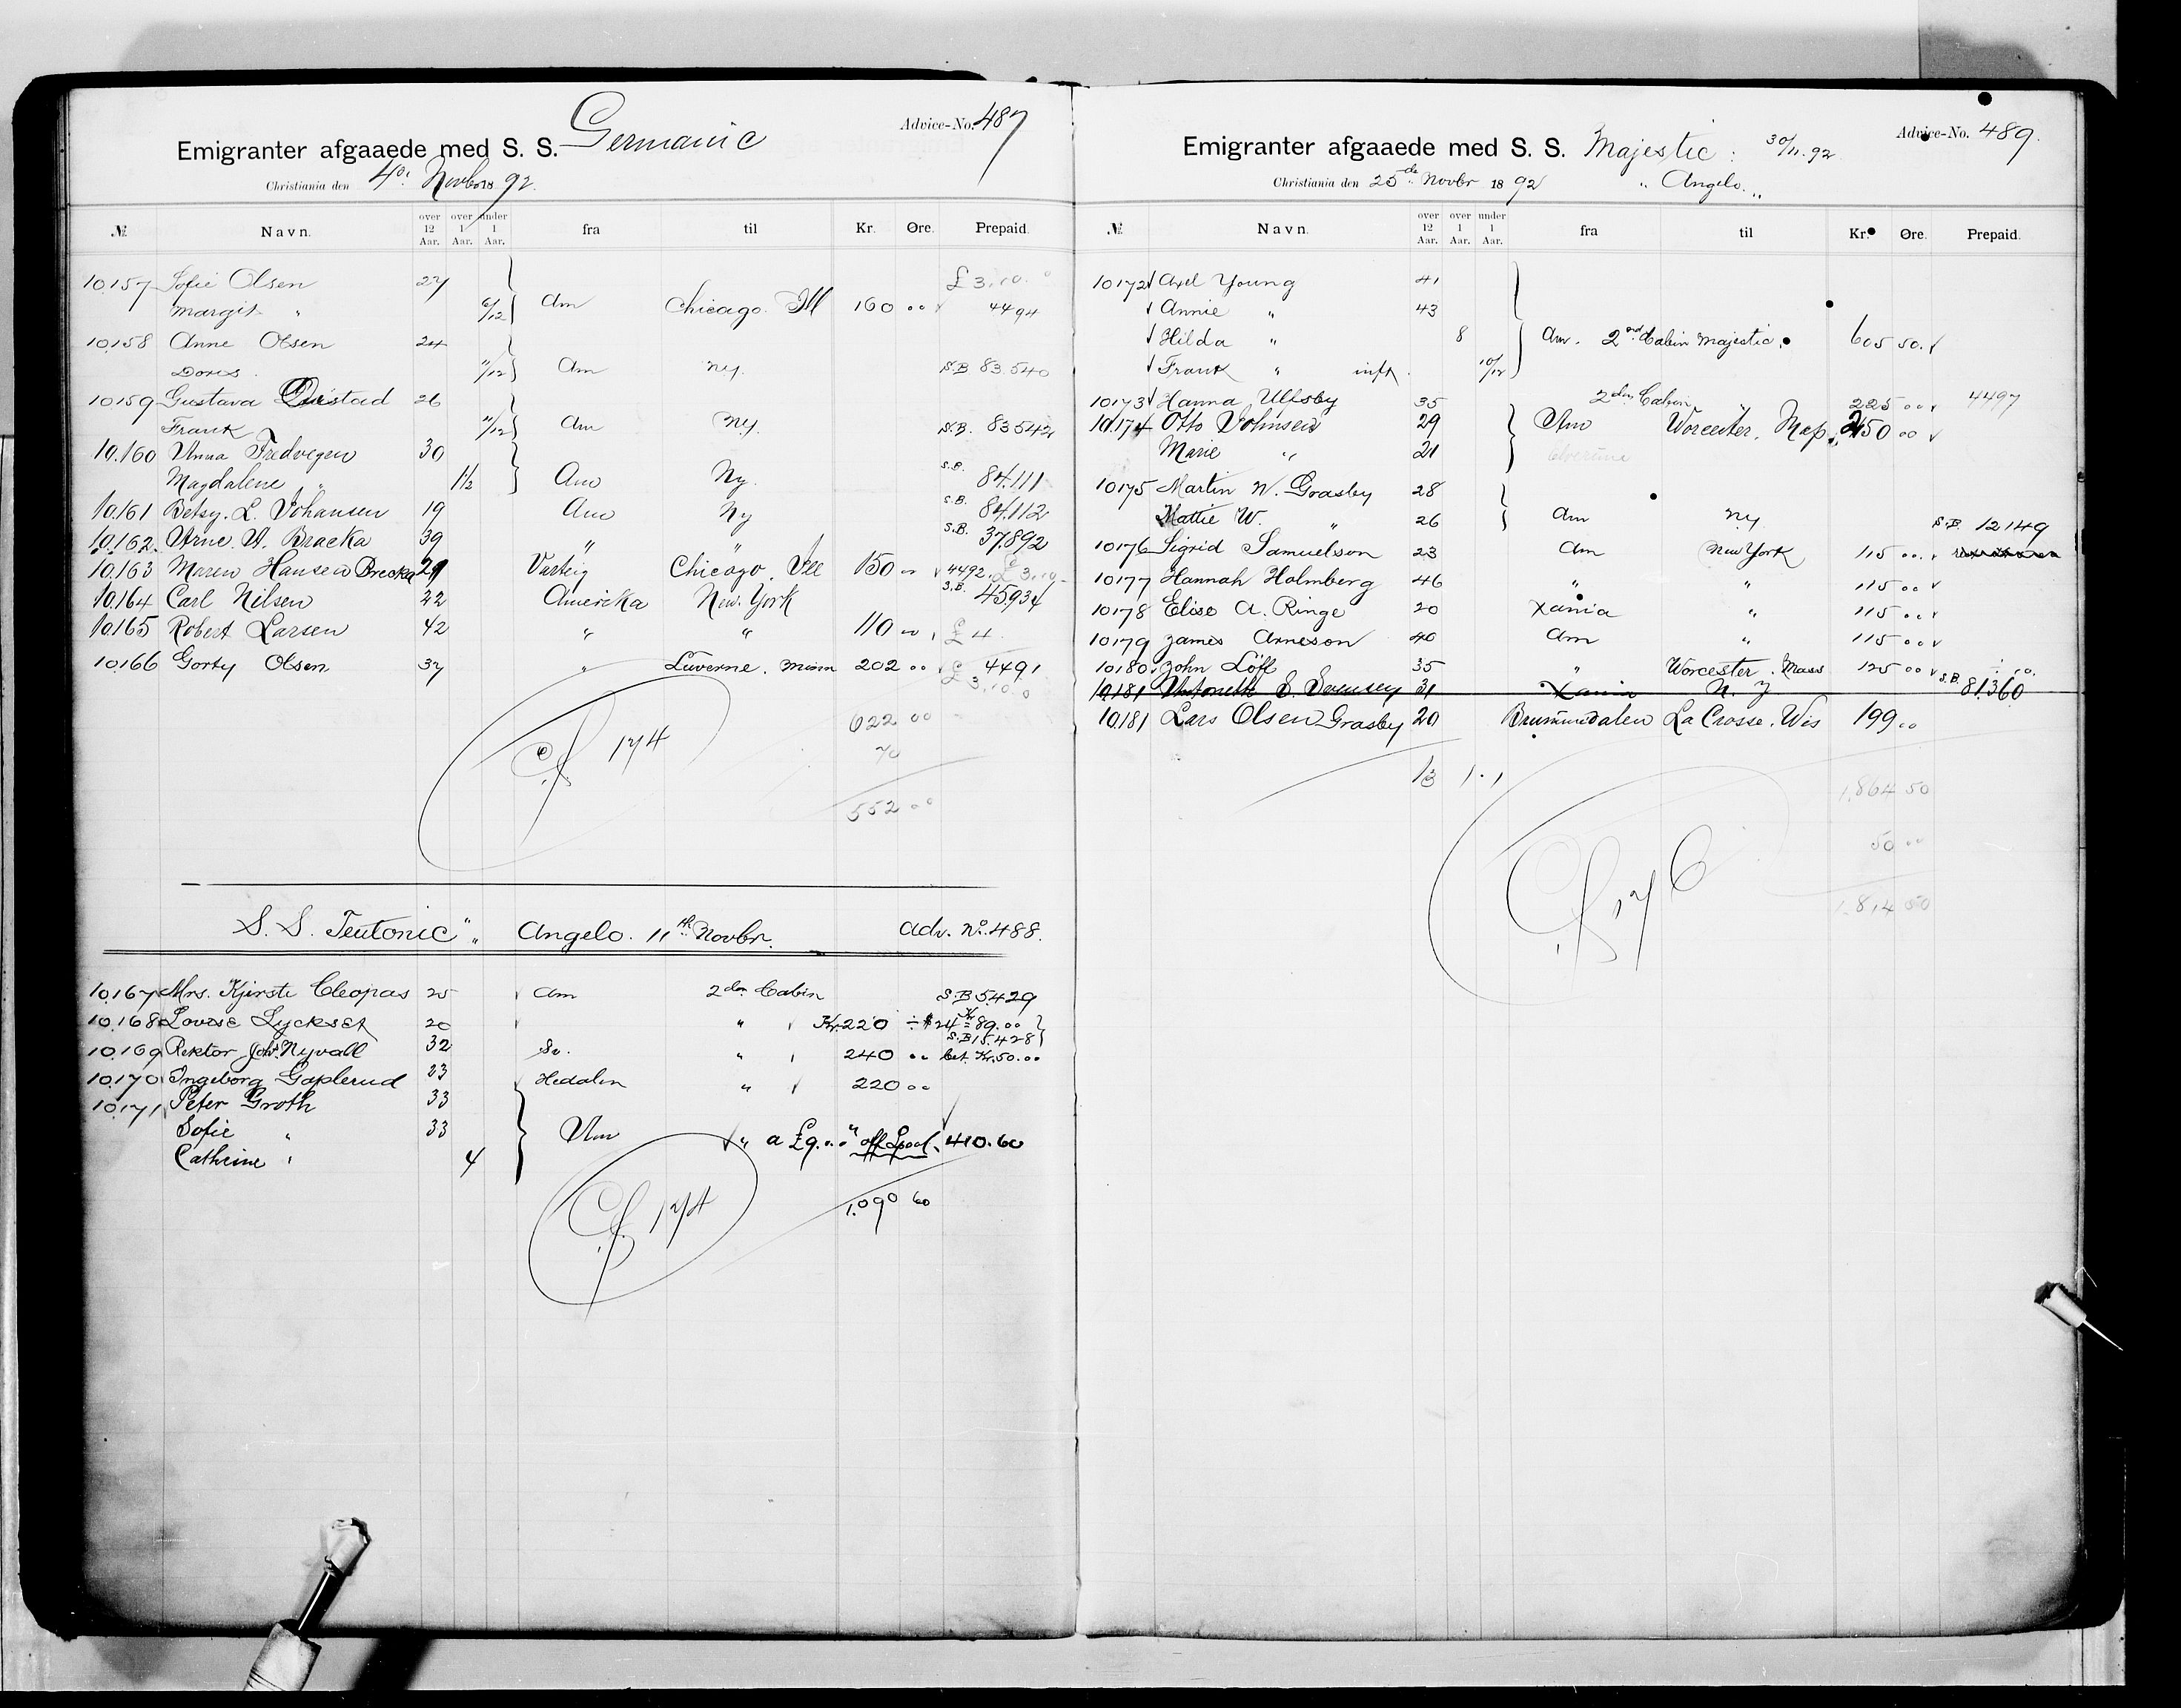 Emigranter afgaaede med S. S. Germanic Advice-No. 487
Christiania den 4de Novbr 1892.
№ Navn. over 12 Aar. over 1 Aar. under 1 Aar. fra til Kr. Øre. Prepaid.
£ 3.10.0
10157 Sofie Olsen 27
Margit " 6/12 Am Chicago. Ill 160 00 4494
10158 Anne Olsen 24
Doris 11/12 Am Ny. S.B 83540
10159 Gustava 26
Frank 11/12 Am Ny. S.B. 83542
10.160 Anna Fredvegen 30
Magdalene " 1½ Am Ny. S.B. 84.111
10.161 Betsy. L. Johansen 19 Am Ny S.B. 84.112
10.162. Arne. A. Bracka 39 " " S.B. 37.892
10.163 Maren Hansen Brecka 29 Varteig Chicago, Ill 150 00 4492. £ 3.10
10.164 Carl Nilsen 22 Amerika New. York S.B. 45934
10.165 Robert Larsen 42 " " 110 00 £ 4
10166 Gorty Olsen 37 " Luverne. Minn 202 00 4491
£ 3.10.0
622 00
174 70
552 00
S. S. Teutonic " Angelo. 11th Novbr. Adv. No. 488.
10.167 Mrs. Kjirste Cleopas 25 Am 2den Cabin S.B 5429
10.168 Lovise Lyckset 20 " Kr. 220 ÷ $24 = Kr 89.00
S.B 15.428
10.169 Rektor Joh. Nyvall 32 Sv. " 240 00 bet. Kr. 50.00
10.170 Ingeborg Gaplerud 23 Hedalen " 220 00
10.171 Peter Groth 33
Sofie " 33 Am " a £9. " off Lpool. 410.60
Cathrine " 4
174 1.090 60
Emigranter afgaaede med S. S. Majestic: 30/11.92 Advice-No. 489.
Christiania den 25de Novbr 1892 " Angelo. "
№ Navn. over 12 Aar. over 1 Aar. under 1 Aar. fra til Kr. Øre. Prepaid.
10172 Axel Young 41
Annie " 43
Hilda " 8 Am. 2nd Cabin Majestic. 605 50.
Frank " inft. 10/12
10173 Hanna Ullsby 35 2den Cabin 225 00 4497
10.174 Otto Johnsen 29 Am Worcester, Mass. 250 00
Marie " 21
10175 Martin W. Grasby 28
Mattie W. " 26 Am Ny S.B. 12149
10176 Sigrid Samuelson 23 Am New York 115 00
10177 Hannah Holmberg 46 " " 115 00
10178 Elise A. Ringe 20 Xania " 115 00
10179 James Arneson 40 Am " 115 00
10180 John Löff 35 " Worcester. Mass 125 00
10.181 Antonette S. Svensen 31 Xania N. Y S.B. 81.360
10.181 Lars Olsen Grasby 20 Brummedalen La Crosse. Wis 199 00
13 1 . 1
1,864 50
50 00
176 1.814 50